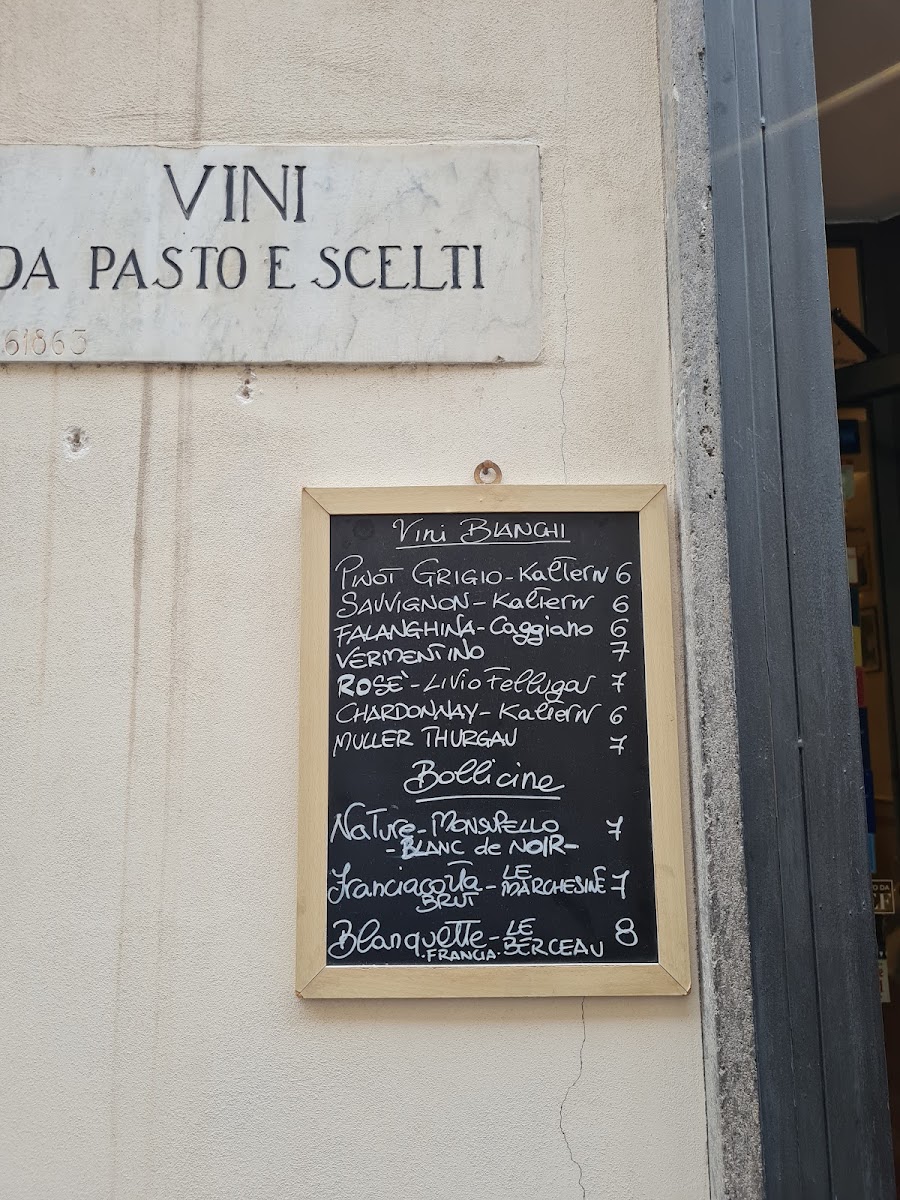 VINI
DA PASTO E SCELTI
61863
Vini BIANCHI
PINOT GRIGIO - Kaltern 6
SAUVIGNON - Kaltern 6
FALANGHINA - Caggiano 6
VERMENTINO 7
ROSÈ - LIVIO Fellugar 7
CHARDONNAY - Kaltern 6
MULLER THURGAU 7
Bollicine
NaTure - MONSUPELLO 7
- BLANC de NOIR -
Franciacorta - LE MARCHESINE 7
BRUT
Blanquette - LE BERCEAU 8
. FRANCIA .